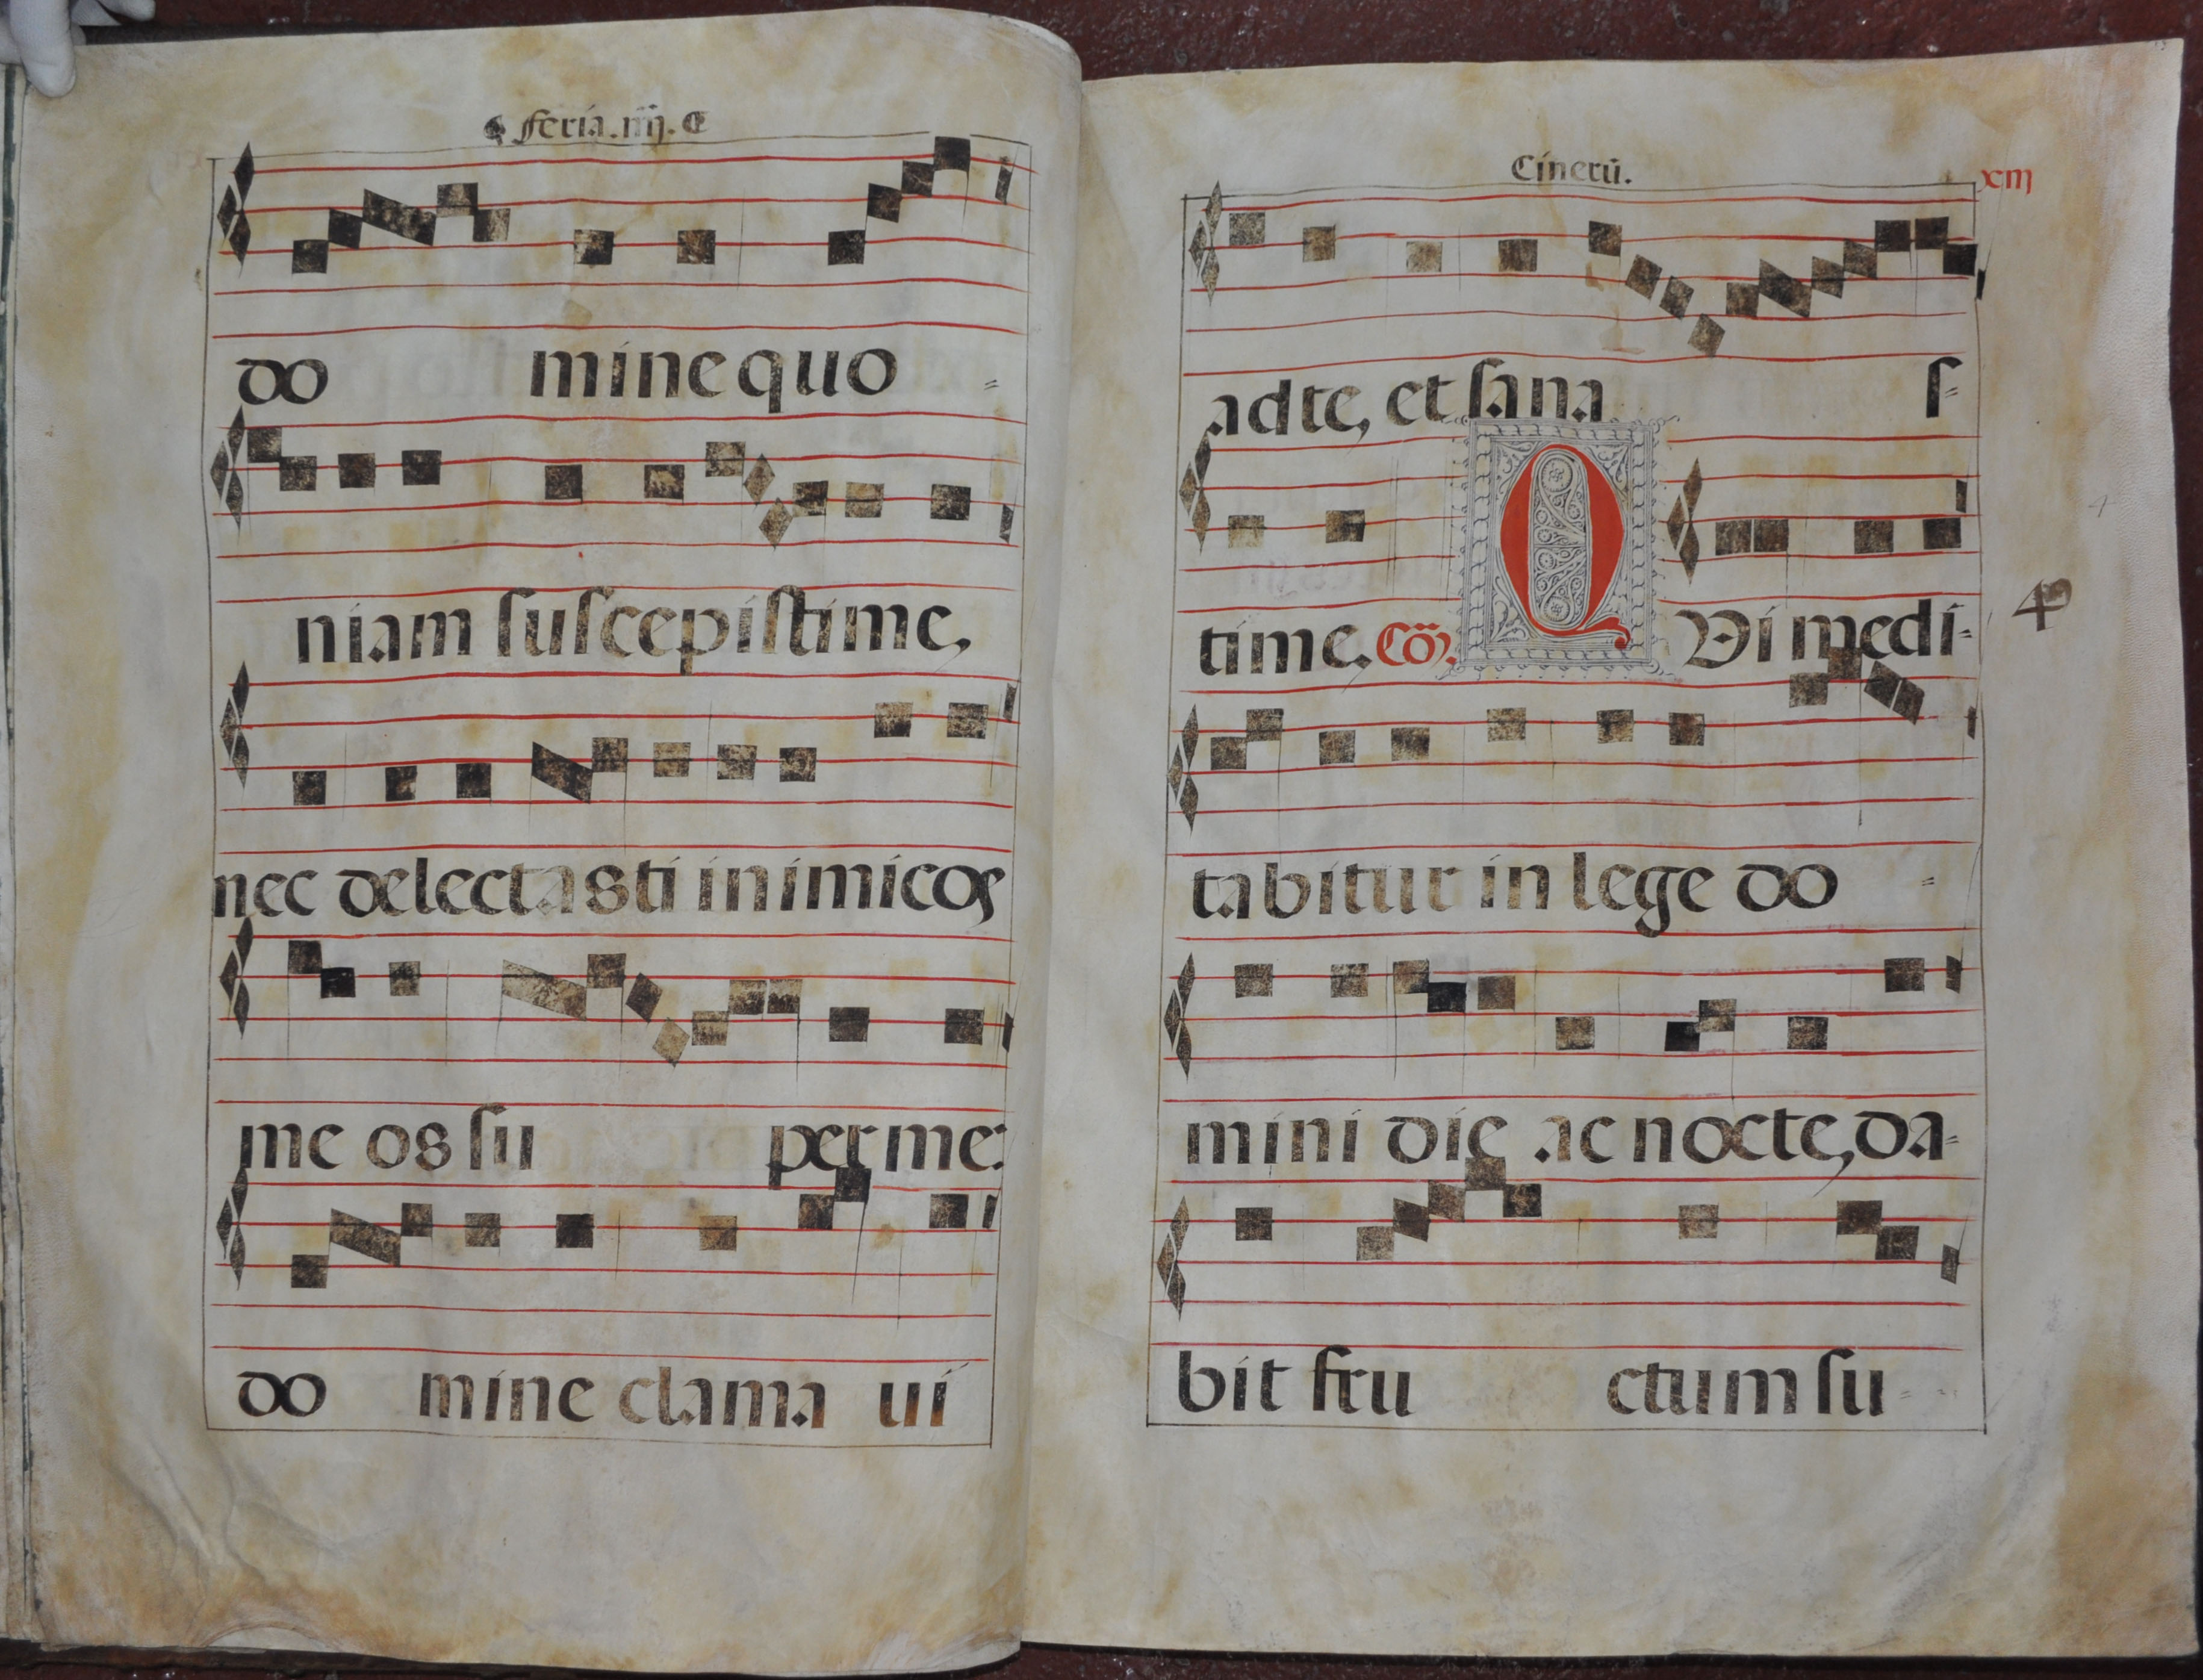 feria. iiij. C
do mine quo =
niam ſuſcepiſti me,
nec delectasti inimicos
me os ſu per me:
do mine clama ui
Cinerū.
xiij
ad te, et ſana ſ=
ti me. Cō. QVi medi=
tabitur in lege do =
mini die ac nocte, da=
bit fru ctum ſu =